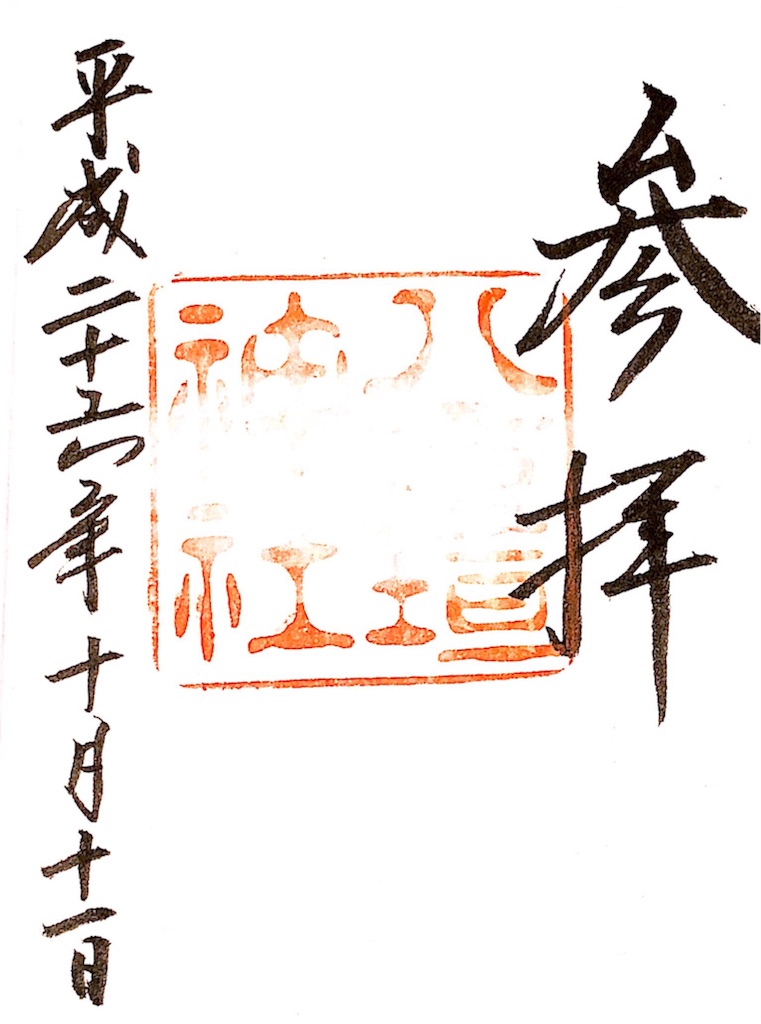 参拝
神社
平成二十六年十月十一日